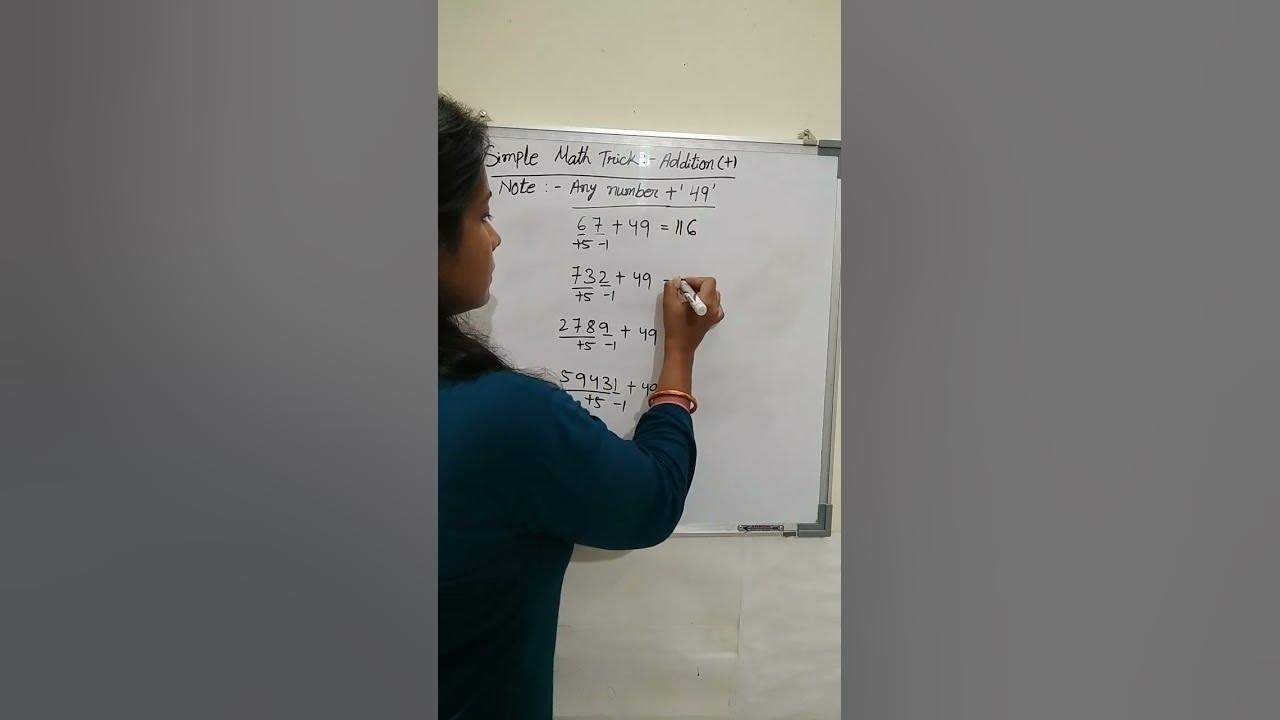 Simple Math Trick :- Addition (+)
Note :- Any number + '49'
67 + 49 = 116
+5 -1
732 + 49 =
+5 -1
2789 + 49
+5 -1
59431 + 49
+5 -1